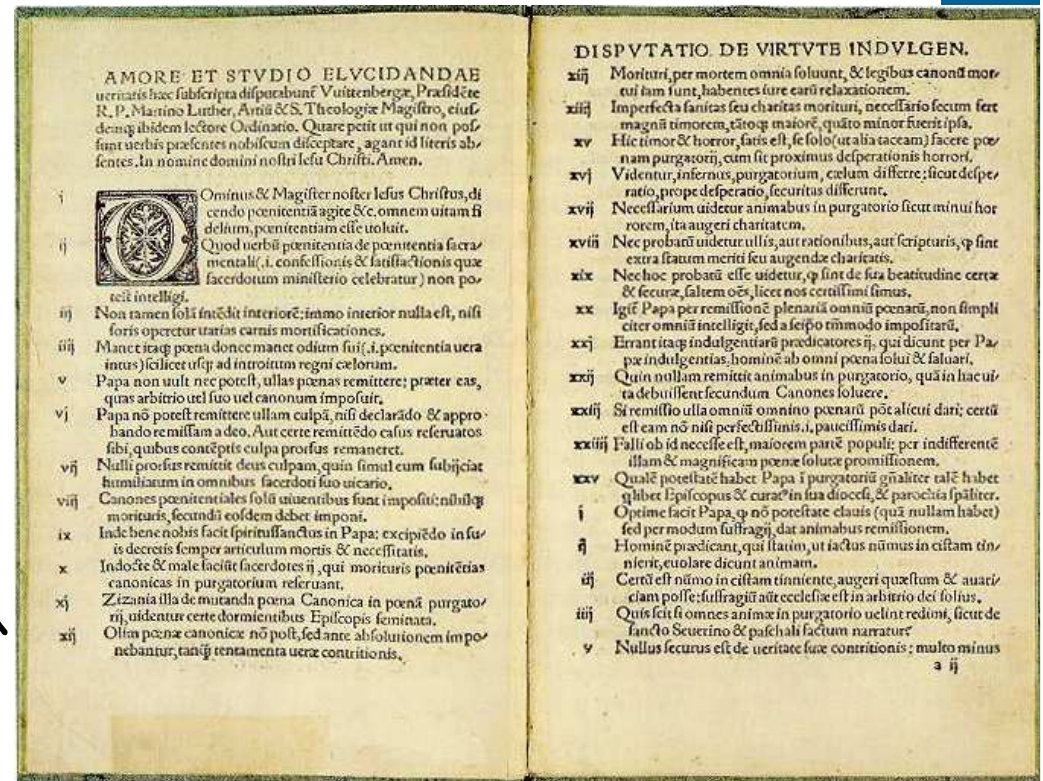 AMORE ET STVDIO ELVCIDANDAE
ueritatis hæc subscripta disputabunt Vuittenbergæ, Præsidẽte
R. P. Martino Luther, Artiũ & S. Theologiæ Magistro, eius/
demq̃ ibidem lectore Ordinario. Quare petit ut qui non pos/
sunt uerbis præsentes nobiscum disceptare, agant id literis ab/
sentes. In nomine domini nostri Iesu Christi. Amen.
i Ominus & Magister noster Iesus Christus, di
cendo pœnitentiã agite &c. omnem uitam fi
delium, pœnitentiam esse uoluit.
ij Quod uerbũ pœnitentia de pœnitentia sacra/
mentali (.i. confessionis & satisfactionis quæ
sacerdotum ministerio celebratur) non po/
test intelligi.
iij Non tamen solã intẽdit interiorẽ: immo interior nulla est, nisi
foris operetur uarias carnis mortificationes.
iiij Manet itaq̃ pœna donec manet odium sui (.i. pœnitentia uera
intus) scilicet usq̃ ad introitum regni cælorum.
v Papa non uult nec potest, ullas pœnas remittere: præter eas,
quas arbitrio uel suo uel canonum imposuit.
vj Papa nõ potest remittere ullam culpã, nisi declarãdo & appro/
bando remissam a deo. Aut certe remittẽdo casus reseruatos
sibi, quibus contẽptis culpa prorsus remaneret.
vij Nulli prorsus remittit deus culpam, quin simul eum subijciat
humiliatum in omnibus sacerdoti suo uicario.
viij Canones pœnitentiales solũ uiuentibus sunt impositi: nihilq̃
morituris, secundũ eosdem debet imponi.
ix Inde bene nobis facit spiritussanctus in Papa: excipiẽdo in su/
is decretis semper articulum mortis & necessitatis.
x Indocte & male faciũt sacerdotes ij, qui morituris pœnitẽtias
canonicas in purgatorium reseruant.
xj Zizania illa de mutanda pœna Canonica in pœnã purgato/
rij, uidentur certe dormientibus Episcopis seminata.
xij Olim pœnæ canonicæ nõ post, sed ante absolutionem impo/
nebantur, tanq̃ tentamenta ueræ contritionis.
DISPVTATIO DE VIRTVTE INDVLGEN.
xiij Morituri, per mortem omnia soluunt, & legibus canonũ mor/
tui iam sunt, habentes iure earũ relaxationem.
xiiij Imperfecta sanitas seu charitas morituri, necessario secum fert
magnũ timorem, tãtoq̃ maiorẽ, quãto minor fuerit ipsa.
xv Hic timor & horror, satis est, se solo (ut alia taceam) facere pœ/
nam purgatorij, cum sit proximus desperationis horrori.
xvj Videntur, infernus, purgatorium, cælum differre: sicut despe/
ratio, prope desperatio, securitas differunt.
xvij Necessarium uidetur animabus in purgatorio sicut minui hor
rorem, ita augeri charitatem.
xviij Nec probatũ uidetur ullis, aut rationibus, aut scripturis, ꝙ sint
extra statum meriti seu augendæ charitatis.
xix Nec hoc probatũ esse uidetur, ꝙ sint de sua beatitudine certæ
& securæ, saltem oẽs, licet nos certissimi simus.
xx Igit̃ Papa per remissionẽ plenariã omniũ pœnarũ, non simpli
citer omniũ intelligit, sed a seipõ tm̃modo impositarũ.
xxj Errant itaq̃ indulgentiarũ prædicatores ij, qui dicunt per Pa/
pæ indulgentias, hominẽ ab omni pœna solui & saluari.
xxij Quin nullam remittit animabus in purgatorio, quã in hac ui/
ta debuissent secundum Canones soluere.
xxiij Si remissio ulla omniũ omnino pœnarũ põt alicui dari: certũ
est eam nõ nisi perfectissimis .i. paucissimis dari.
xxiiij Falli ob id necesse est, maiorem partẽ populi: per indifferentẽ
illam & magnificam pœnæ solutæ promissionem.
xxv Qualẽ potestatẽ habet Papa ĩ purgatoriũ gñaliter talẽ habet
q̃libet Episcopus & curat⁹ in sua diocesi, & parochia spãliter.
j Optime facit Papa, ꝙ nõ potestate clauis (quã nullam habet)
sed per modum suffragij, dat animabus remissionem.
ij Hominẽ prædicant, qui statim, ut iactus nũmus in cistam tin/
nierit, euolare dicunt animam.
iij Certũ est nũmo in cistam tinniente, augeri quæstum & auari/
ciam posse: suffragiũ aũt ecclesiæ est in arbitrio dei solius.
iiij Quis scit si omnes animæ in purgatorio uelint redimi, sicut de
sancto Seuerino & paschali factum narratur?
v Nullus securus est de ueritate suæ contritionis: multo minus
a ij